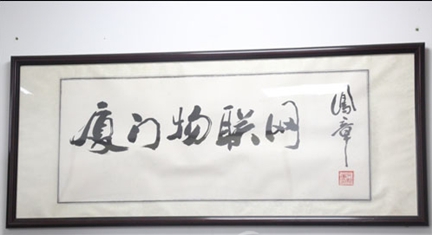 厦门物联网